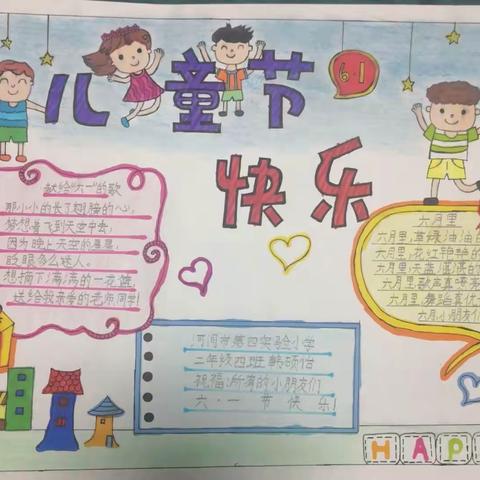 儿童节
6·1
快乐
献给"六一"的歌
那小小的长了翅膀的心,
梦想着飞到天空中去;
因为晚上天空的星星,
的眼多么迷人。
想摘下满满的一花篮,
送给我亲爱的老师同学!
六月里
六月里,草绿油油
六月里,花红
六月里,天蓝
六月里,歌声真
六月里,舞蹈真优
六月,小朋友们
河间市第四实验小学
三年级四班 韩硕怡
祝福:所有的小朋友们
六·一节快乐!
HAP